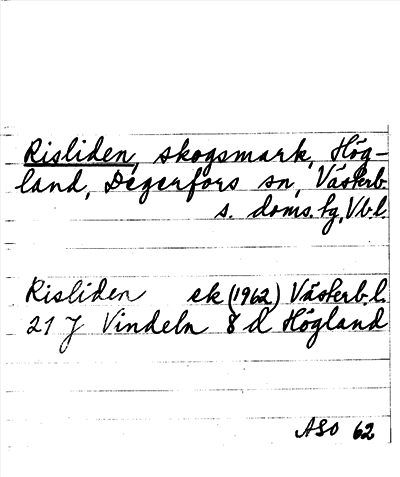 Risliden, skogsmark, Hög-
land, Degerfors sn, Västerb.
s. doms. hg, Vb.l.
Risliden ek (1962) Västerb.l.
21 J Vindeln 8 d Högland
ASO 62